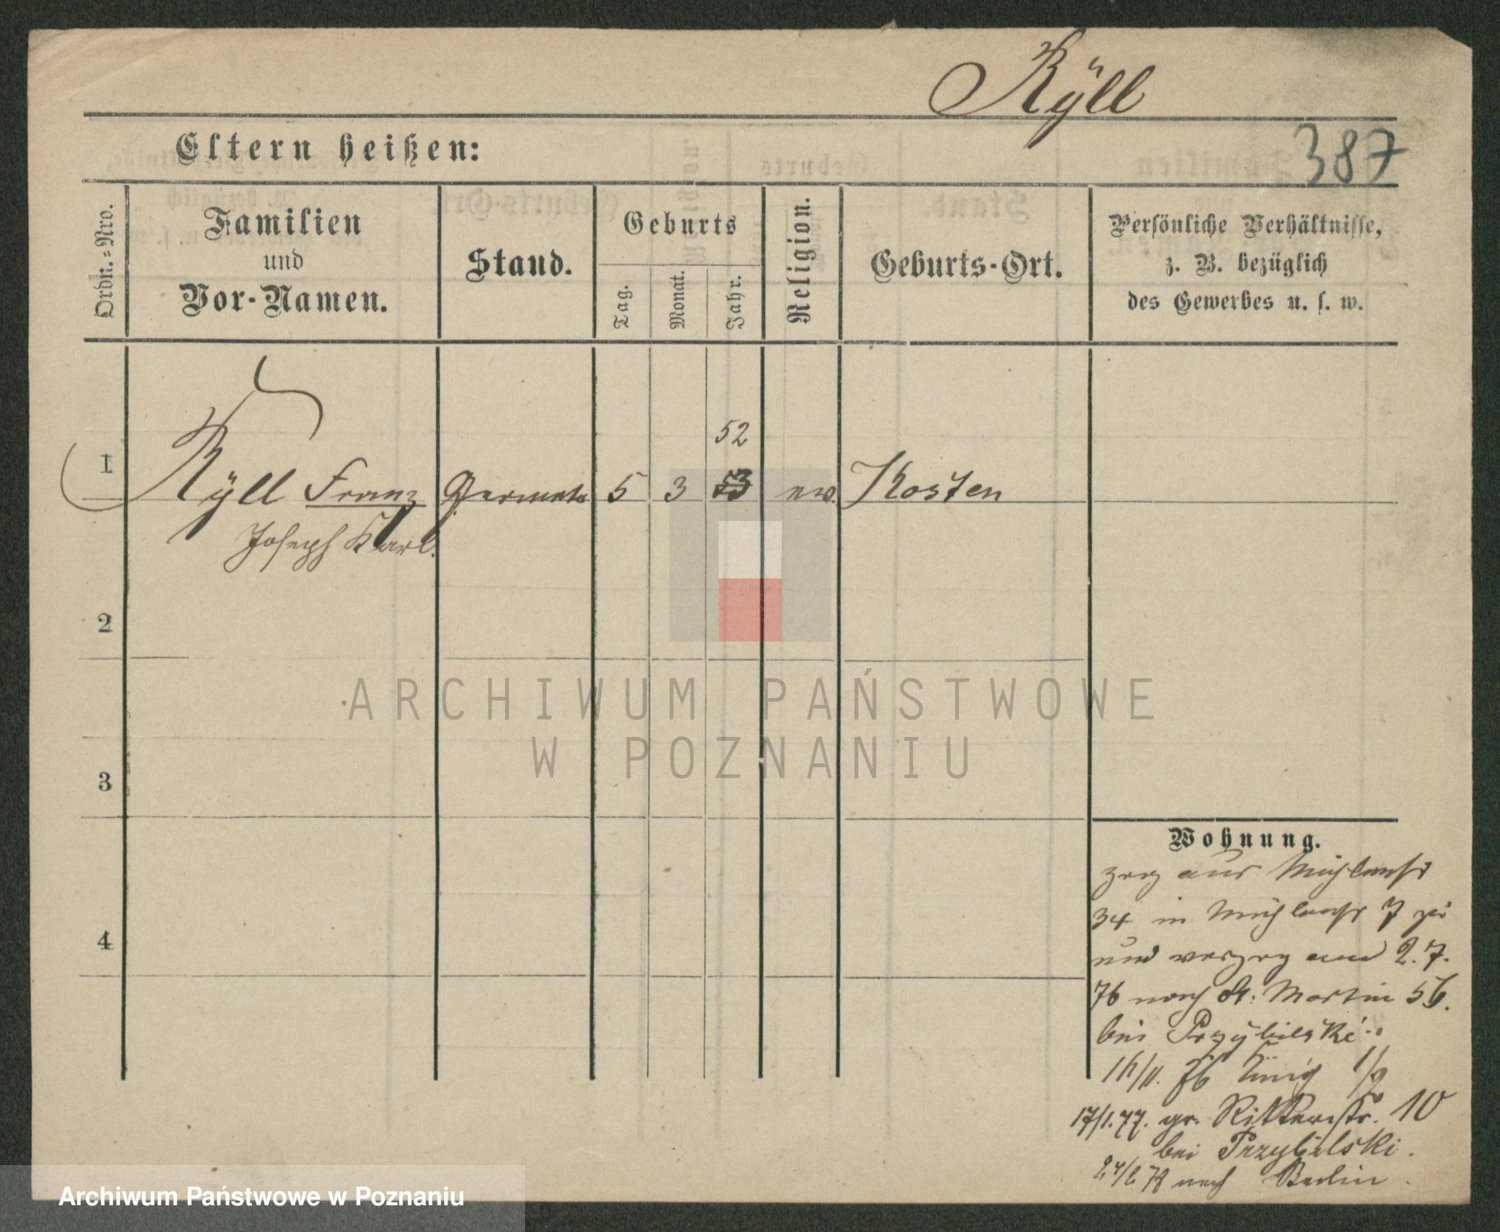 Rÿll
387
Eltern heißen:
Ordn.-Nro.
Familien
und
Vor-Namen.
Stand.
Geburts
Tag.
Monat.
Jahr.
Religion.
Geburts-Ort.
Persönliche Verhältnisse,
z. B. bezüglich
des Gewerbes u. s. w.
52
1 Rÿll Franz 5 3 53 ev. Kosten
Joseph Karl.
2
3
4
Wohnung.
zog aus Mühlenstr
34 in Mühlenstr 7 zu
und verzog am 2.7.
76 nach St. Martin 56.
bei Przybilski
76
17/1.77. gr. Ritterstr. 10
bei Przybilski.
nach Berlin.
ARCHIWUM PAŃSTWOWE
W POZNANIU
Archiwum Państwowe w Poznaniu